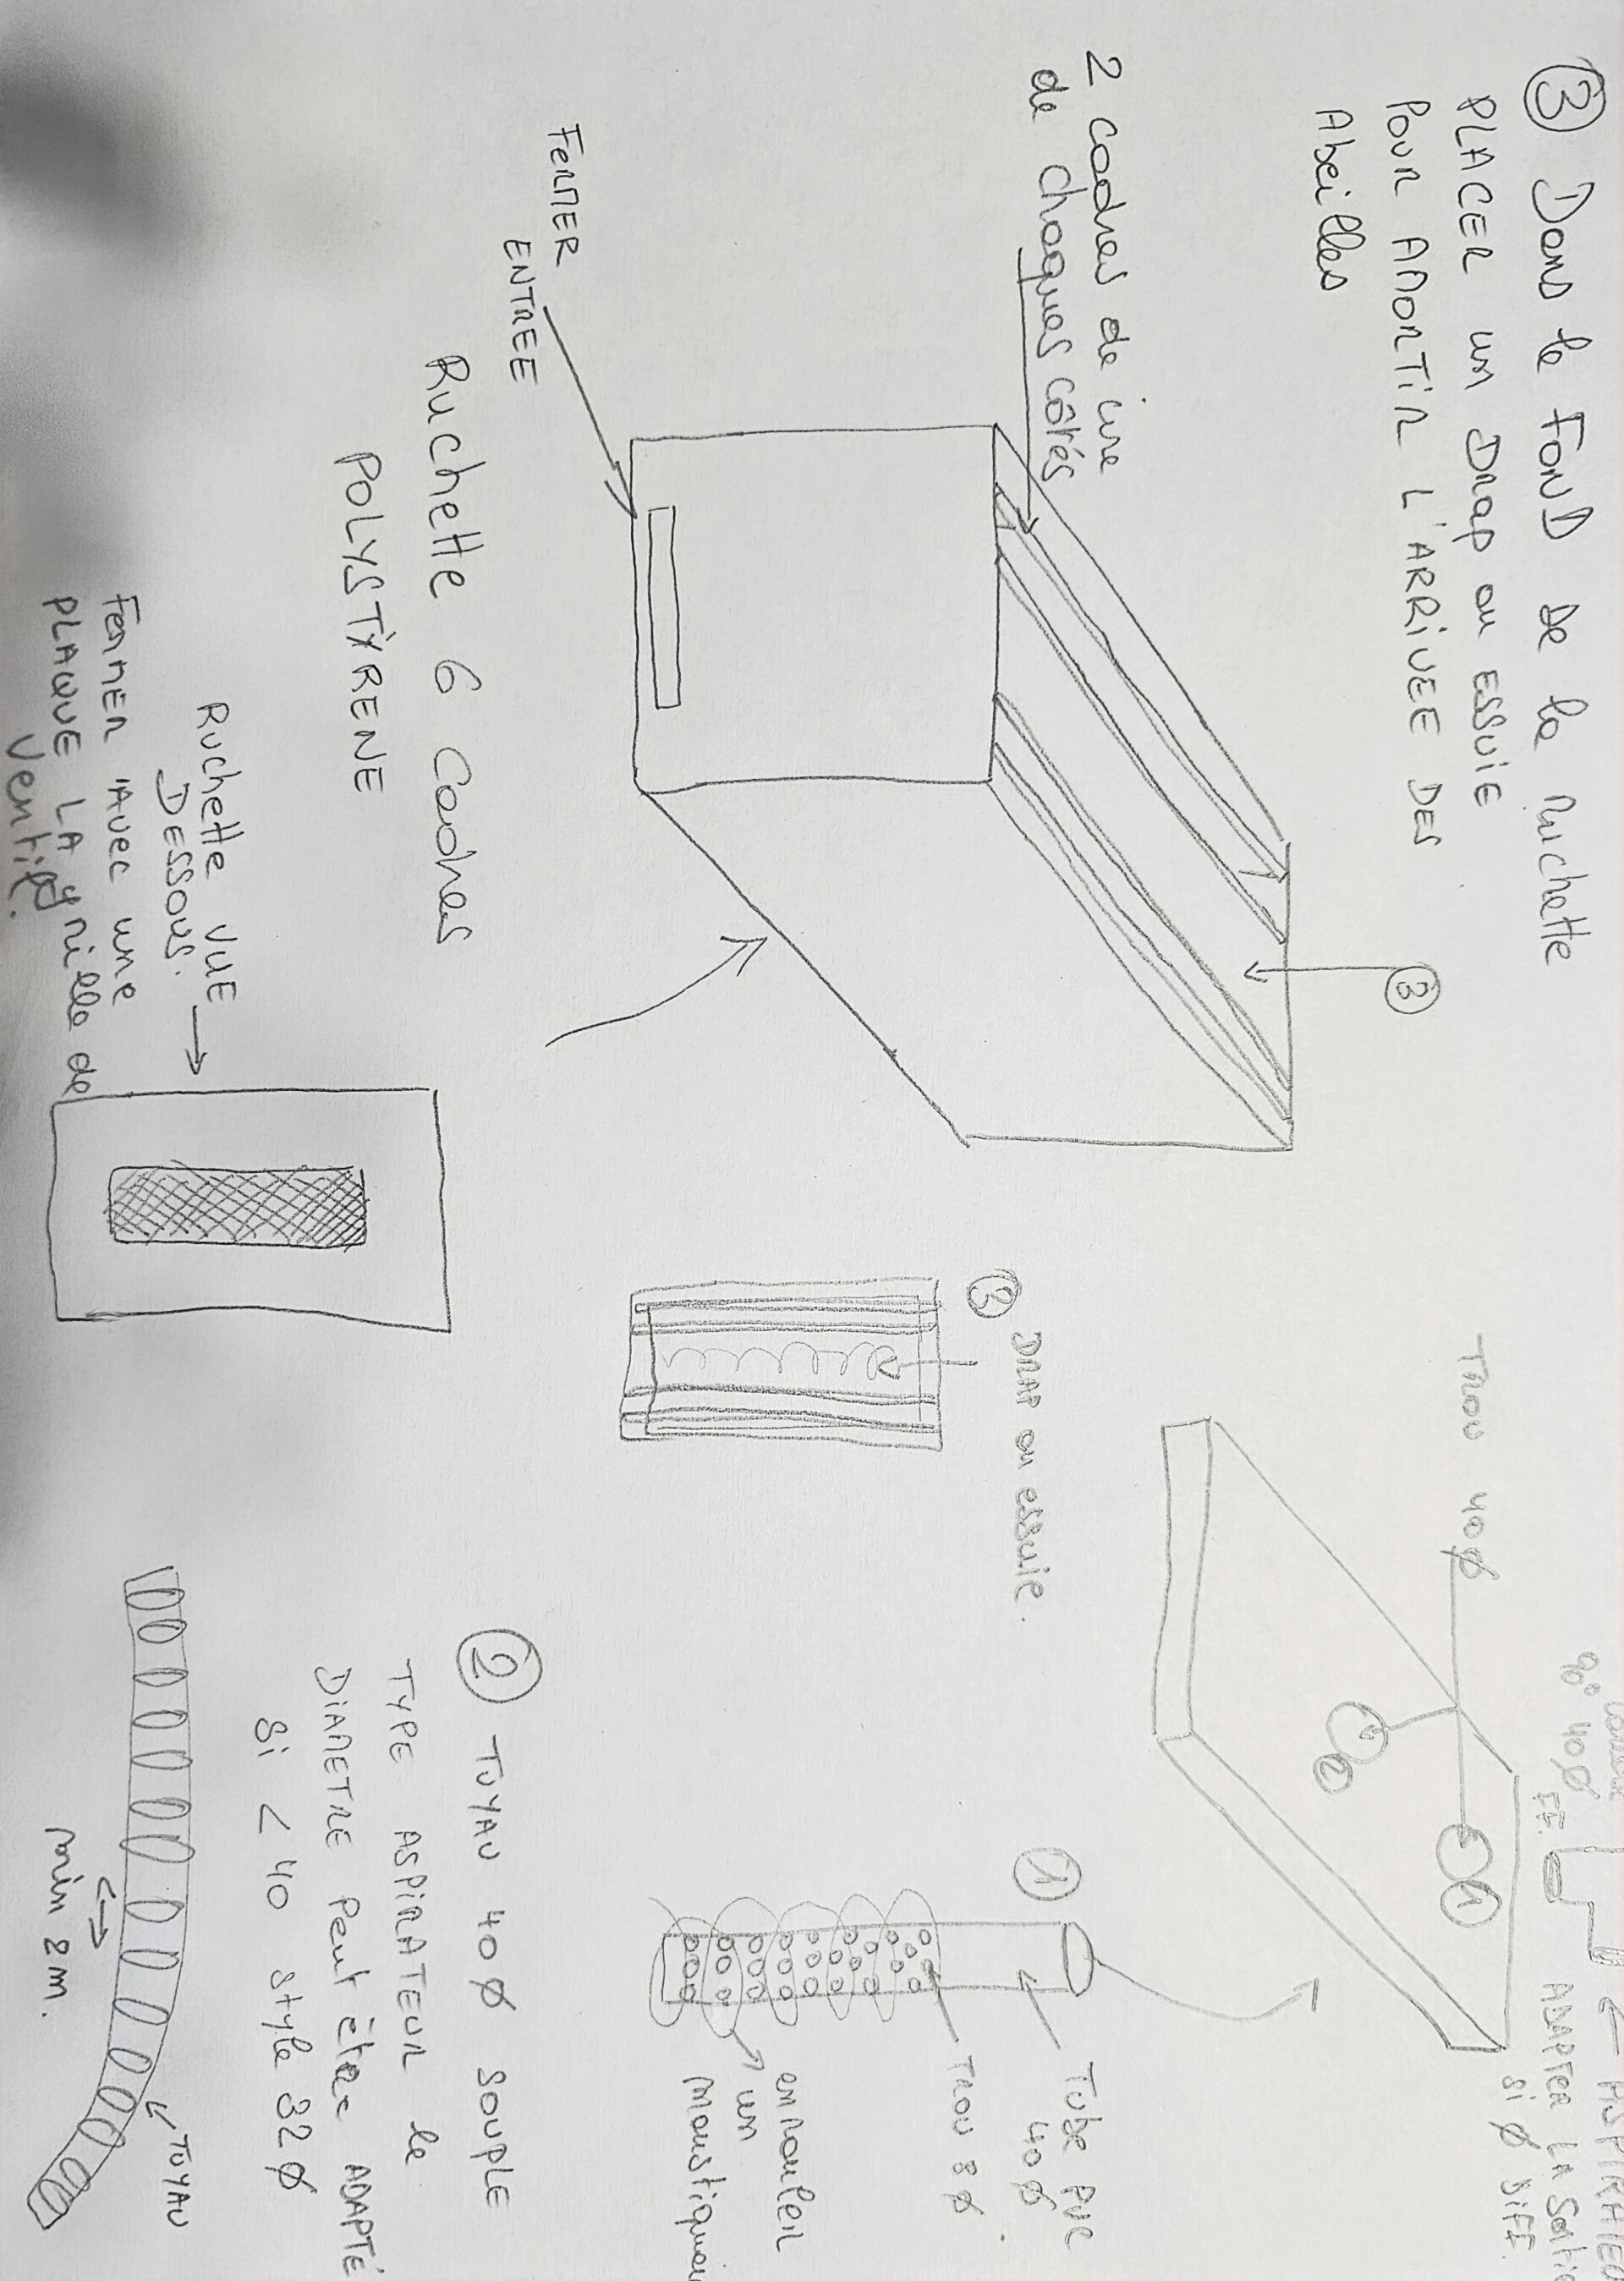 ③ Dans le FOND de la ruchette
PLACER un DRAP ou ESSUIE
POUR AMORTIR L'ARRIVEE DES
Abeilles
2 cadres de cire
de chaques côtés
③
FERMER
ENTREE
Ruchette 6 Cadres
POLYSTYRENE
Ruchette VUE
DESSOUS.
FERMER AVEC une
PLAQUE LA grille de
Ventil.
③ DRAP ou essuie.
90° 40Ø
FF.
← ASPIRATEU
ADAPTER LA Sorti
si Ø DIFF.
TROU 40Ø
①
②
①
Tube PVC
40Ø
TROU 8Ø
enrouler
un
moustiquai
② TUYAU 40Ø SOUPLE
TYPE ASPIRATEUR le
DIAMETRE Peut Être ADAPTÉ
Si < 40 style 32Ø
TUYAU
min 2m.